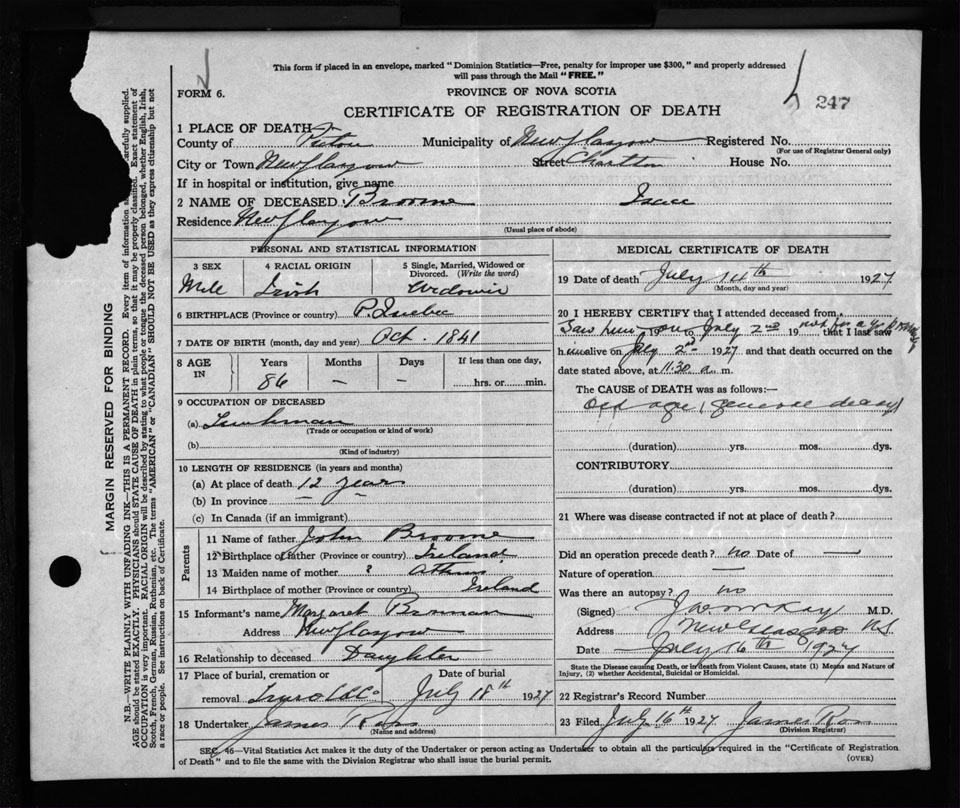 This form if placed in an envelope, marked "Dominion Statistics—Free, penalty for improper use $300," and properly addressed
will pass through the Mail "FREE."
FORM 6.
PROVINCE OF NOVA SCOTIA
247
CERTIFICATE OF REGISTRATION OF DEATH
1 PLACE OF DEATH
County of Pictou Municipality of New Glasgow Registered No.
(For use of Registrar General only)
City or Town New Glasgow Street House No.
If in hospital or institution, give name
2 NAME OF DECEASED Broome Isaac
Residence New Glasgow
(Usual place of abode)
PERSONAL AND STATISTICAL INFORMATION
3 SEX 4 RACIAL ORIGIN 5 Single, Married, Widowed or Divorced. (Write the word)
Male Irish Widower
6 BIRTHPLACE (Province or country) P. Quebec
7 DATE OF BIRTH (month, day and year) Oct. 1841
8 AGE IN Years Months Days If less than one day,
86 — — hrs. or min.
9 OCCUPATION OF DECEASED
(a)
(Trade or occupation or kind of work)
(b)
(Kind of industry)
10 LENGTH OF RESIDENCE (in years and months)
(a) At place of death 12 years
(b) In province — —
(c) In Canada (if an immigrant)
Parents
11 Name of father John Broome
12 Birthplace of father (Province or country) Ireland
13 Maiden name of mother ?
14 Birthplace of mother (Province or country) Ireland
15 Informant's name Margaret
Address New Glasgow
16 Relationship to deceased Daughter
17 Place of burial, cremation or Date of burial
removal July 18th 1927
18 Undertaker James Ross
(Name and address)
MEDICAL CERTIFICATE OF DEATH
19 Date of death July 14th 1927
(Month, day and year)
20 I HEREBY CERTIFY that I attended deceased from
Saw him 19 on July 2nd 19 that I last saw
him alive on July 2nd 1927 and that death occurred on
date stated above, at 11:30 a. m.
The CAUSE of DEATH was as follows:—
Old age (general decay)
(duration) yrs. mos. dys.
CONTRIBUTORY
(duration) yrs. mos. dys.
21 Where was disease contracted if not at place of death?
Did an operation precede death? no Date of —
Nature of operation —
Was there an autopsy? no
(Signed) M.D.
Address New Glasgow N.S.
Date July 16th 1927
State the Disease causing Death, or in death from Violent Causes, state (1) Means and Nature of
Injury, (2) whether Accidental, Suicidal or Homicidal.
22 Registrar's Record Number
23 Filed July 16th 1927 James Ross
(Division Registrar)
SEC. 46—Vital Statistics Act makes it the duty of the Undertaker or person acting as Undertaker to obtain all the particulars required in the "Certificate of Registration
of Death" and to file the same with the Division Registrar who shall issue the burial permit.
(OVER)
MARGIN RESERVED FOR BINDING
N.B.—WRITE PLAINLY WITH UNFADING INK—THIS IS A PERMANENT RECORD. Every item of information carefully supplied.
AGE should be stated EXACTLY. PHYSICIANS should STATE CAUSE OF DEATH in plain terms, so that it may be properly classified. Exact statement of
OCCUPATION is very important. RACIAL ORIGIN will be described by stating to what people or tongue the deceased person belonged, whether English, Irish,
Scotch, French, German, Russian, Ruthenian, etc. The terms "AMERICAN" or "CANADIAN" SHOULD NOT BE USED as they express citizenship but not
a race or people. See instructions on back of Certificate.